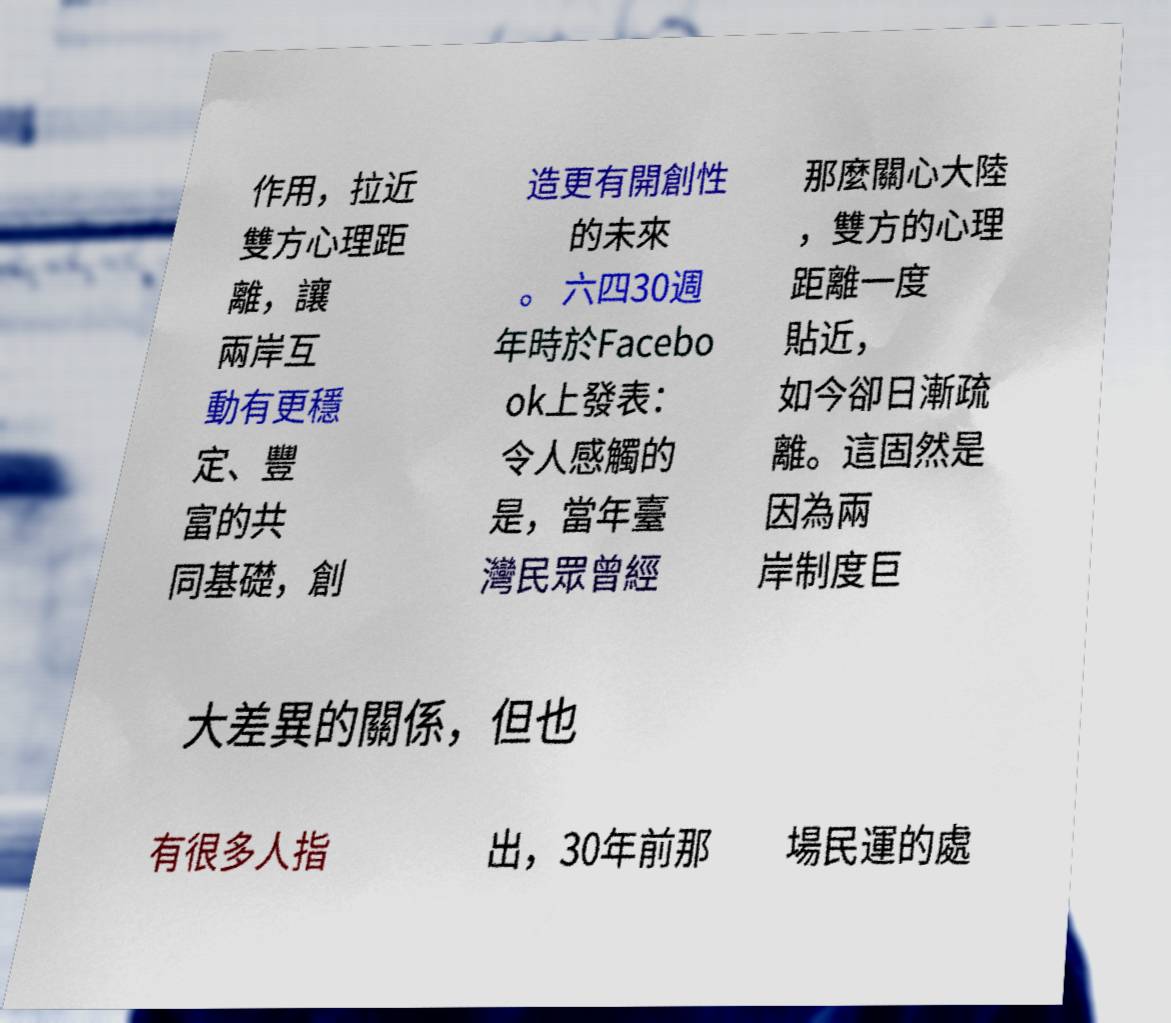 作用，拉近
雙方心理距
離，讓
兩岸互
動有更穩
定、豐
富的共
同基礎，創
造更有開創性
的未來
。 六四30週
年時於Facebo
ok上發表：
令人感觸的
是，當年臺
灣民眾曾經
那麼關心大陸
，雙方的心理
距離一度
貼近，
如今卻日漸疏
離。這固然是
因為兩
岸制度巨
大差異的關係，但也
有很多人指
出，30年前那
場民運的處